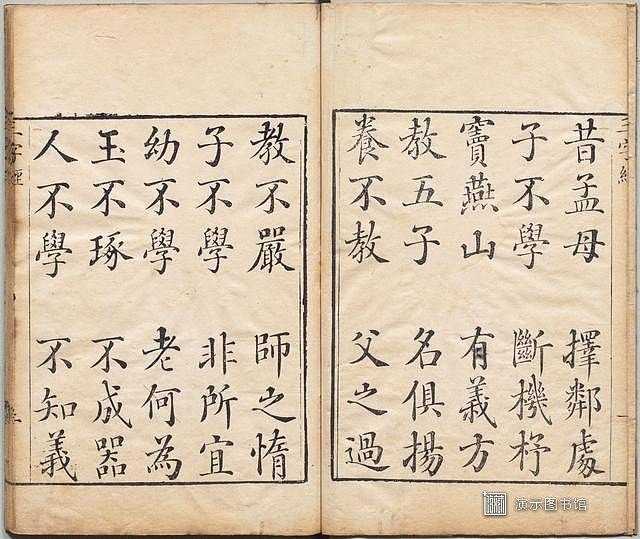 昔孟母 擇鄰處
子不學 斷機杼
竇燕山 有義方
教五子 名俱揚
養不教 父之過
教不嚴 師之惰
子不學 非所宜
幼不學 老何為
玉不琢 不成器
人不學 不知義
三字經
三字經
演示图书馆